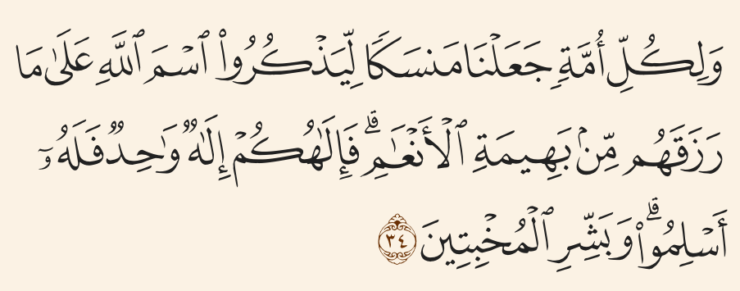 وَلِكُلِّ أُمَّةٖ جَعَلۡنَا مَنسَكٗا لِّيَذۡكُرُواْ ٱسۡمَ ٱللَّهِ عَلَىٰ مَا
رَزَقَهُم مِّنۢ بَهِيمَةِ ٱلۡأَنۡعَٰمِۗ فَإِلَٰهُكُمۡ إِلَٰهٞ وَٰحِدٞ فَلَهُۥٓ
أَسۡلِمُواْۗ وَبَشِّرِ ٱلۡمُخۡبِتِينَ ٣٤